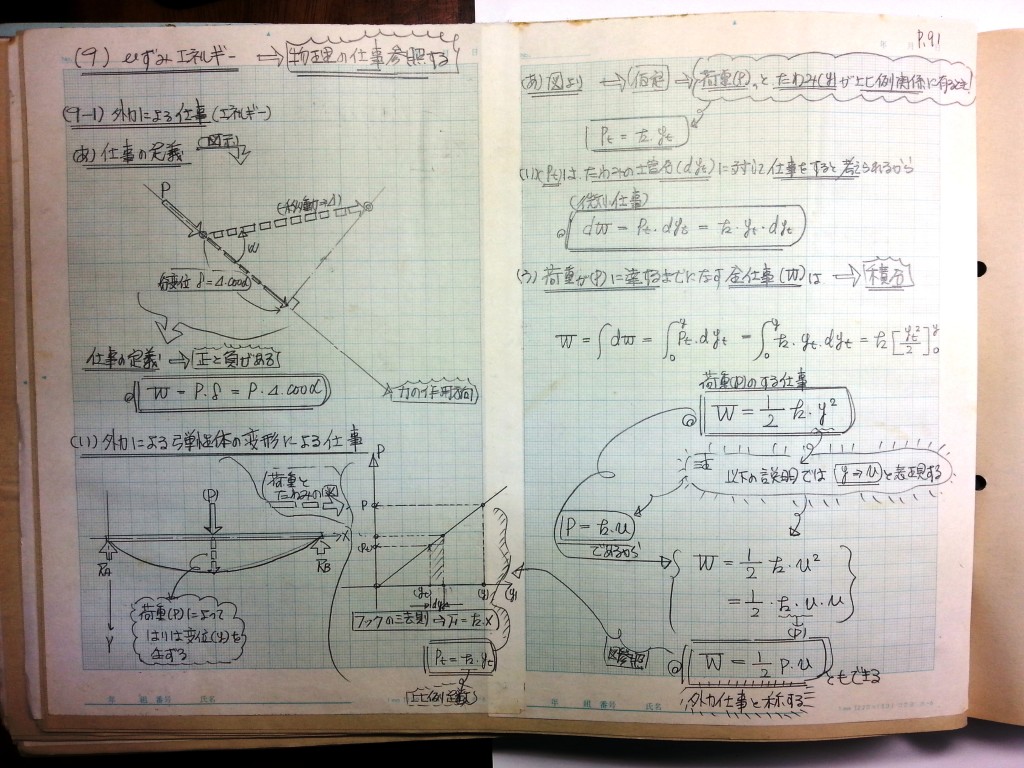 (9) ひずみエネルギー ⇒ 物理の仕事参照する
(9-1) 外力による仕事(エネルギー)
(あ) 仕事の定義 図示
P
(移動=Δ)
α
変位 δ=Δ.cosα
仕事の定義 → 正と負がある
W = P.δ = P.Δ.cosα
力の作用方向
(い) 外力による弾性体の変形による仕事
荷重と
たわみの図
P
(P)
P
Pt
X
RA
RB
(yt)
dyt
(y)
(y)
Y
荷重(P)によって
はりは変位(y)を
生ずる
フックの法則 → F=k.x
Pt=k.yt
比例定数
年 組 番号 氏名
P.91
(あ) 図より ⇒ 仮定 → 荷重(P)と たわみ(y)が比例関係に有るとき
Pt = k.yt
(い) (Pt)は、たわみの増分(dyt)に対して仕事をすると考えられるから
(微小仕事)
dw = Pt.dyt = k.yt.dyt
(う) 荷重が(P)に達するまでになす全仕事(W)は ⇒ 積分
W = ∫dw = ∫₀ʸ Pt.dyt = ∫₀ʸ k.yt.dyt = k[yt²/2]₀ʸ
荷重(P)のする仕事
W = 1/2 k.y²
注 以下の説明では y→u と表現する
P = k.u
であるから
W = 1/2 k.u²
= 1/2.k.u.u
(P)
図参照
W = 1/2 P.u ともできる
外力仕事と称する
年 組 番号 氏名